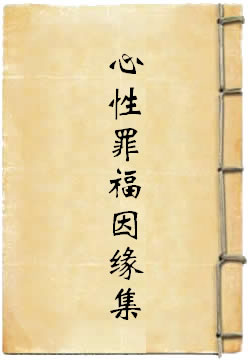 心性罪福因缘集